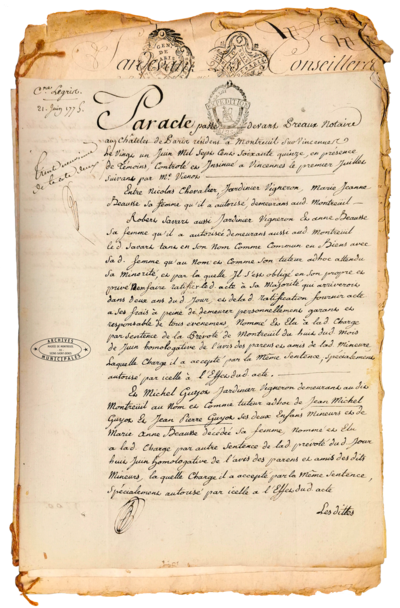 Pardevant les Conseillers
Cne Legris.
21. Juin 1775.
Par acte passé devant Dreaux Notaire
au Châtelet de Paris résident a Montreuil Sur Vincennes
le Vingt un Juin Mil Sept Cent Soixante quinze, en présence
de temoins, Controlé et Insinué a Vincennes le premier Juillet
Suivant par Mr Vienot
Entre Nicolas Chevalier Jardinier Vigneron Marie Jeanne
Beausse Sa femme qu'il a autorisé, demeurans aud Montreuil
Robert Savart aussi Jardinier Vigneron et anne Beausse
Sa femme qu'il a autorisée demeurans aussi aud Montreuil
led Savart tant en Son Nom Comme Commun en Biens avec
Sad. femme qu'au nom et Comme Son tuteur adhoc attendu
Sa Minorité, et par laquelle Il S'est obligé en Son propre et
privé Nom faire ratifier led acte a Sa Majorité qui arrivera
dans deux ans du d. Jour, et de lad ratification fournir acte
a Ses frais a peine de demeurer personnellement garant et
responsable de tous evenemens, Nommé et Elu a lad Charge
par Sentence de la Prevoté de Montreuil du huit dud Mois
de Juin homologative de l'avis des parens et amis de lad Mineure
Laquelle Charge il a accepté par la Même Sentence, Spécialement
autorisé par icelle a l'Effet dud acte.
Et Michel Guyot Jardinier Vigneron demeurant aud
Montreuil au Nom et Comme tuteur adhoc de Jean Michel
Guyot Et Jean Pierre Guyot Ses deux Enfans Mineurs et de
Marie Anne Beausse décédée Sa femme, Nommé et Elu
a lad Charge par autre Sentence de lad prevoté dud Jour
huit Juin homologative de l'avis des parens et amis desdits
Mineurs, la quelle Charge il a accepté par la Même Sentence,
Spécialement autorisé par icelle a l'Effet dud acte
Lesdittes
ARCHIVES
MUNICIPALES